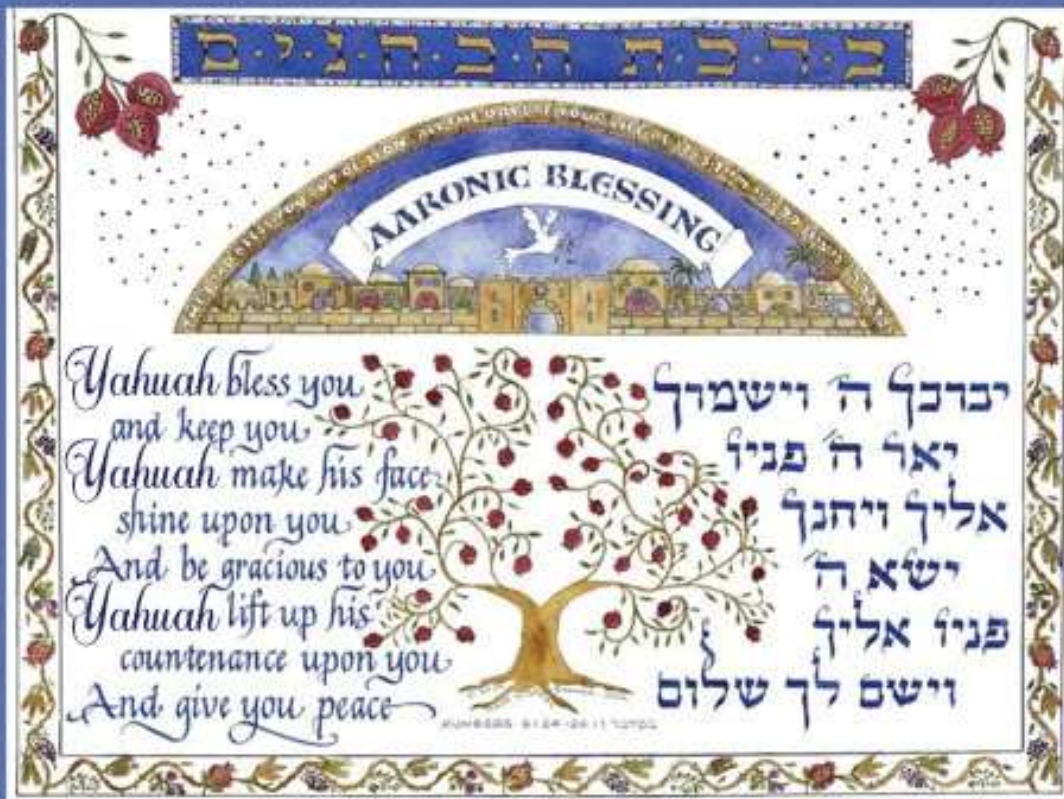 ב·ר·כ·ת ה·כ·ה·נ·י·ם
OF ZION ALL THE DAYS OF YOUR LIFE
AARONIC BLESSING
Yahuah bless you
and keep you
Yahuah make his face
shine upon you
And be gracious to you
Yahuah lift up his
countenance upon you
And give you peace
יברכך ה' וישמרך
יאר ה' פניו
אליך ויחנך
ישא ה'
פניו אליך
וישם לך שלום
NUMBERS 6:24-26 במדבר